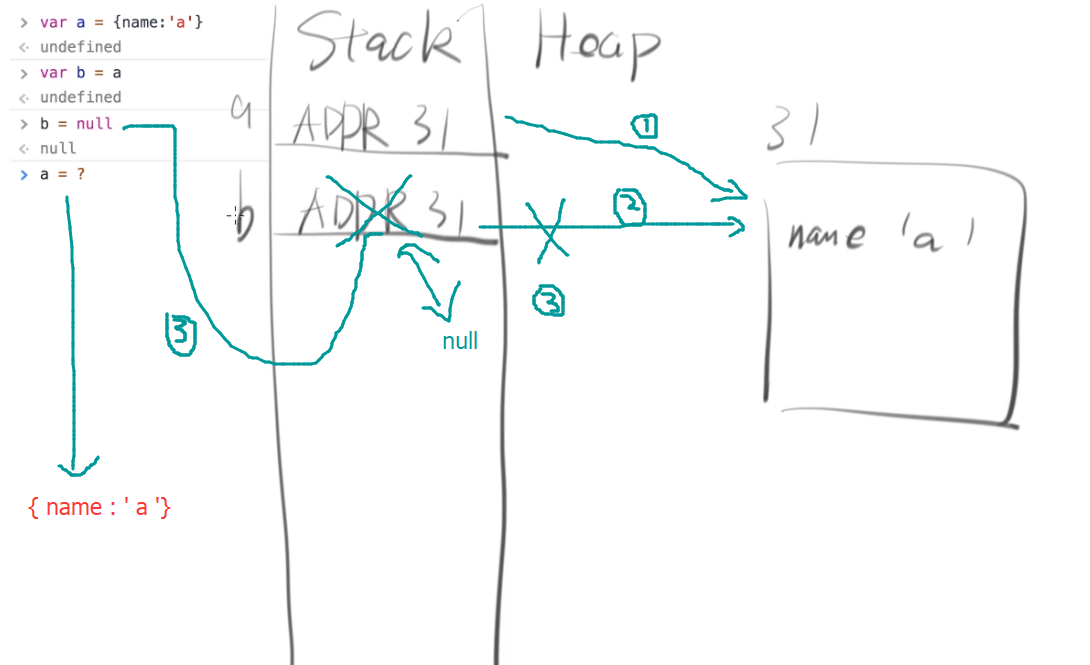 > var a = {name:'a'}
<· undefined
> var b = a
<· undefined
> b = null
<· null
> a = ?
Stack
Heap
a
ADDR 31
1
31
b
ADDR 31
2
name 'a'
3
3
null
{ name : ' a '}